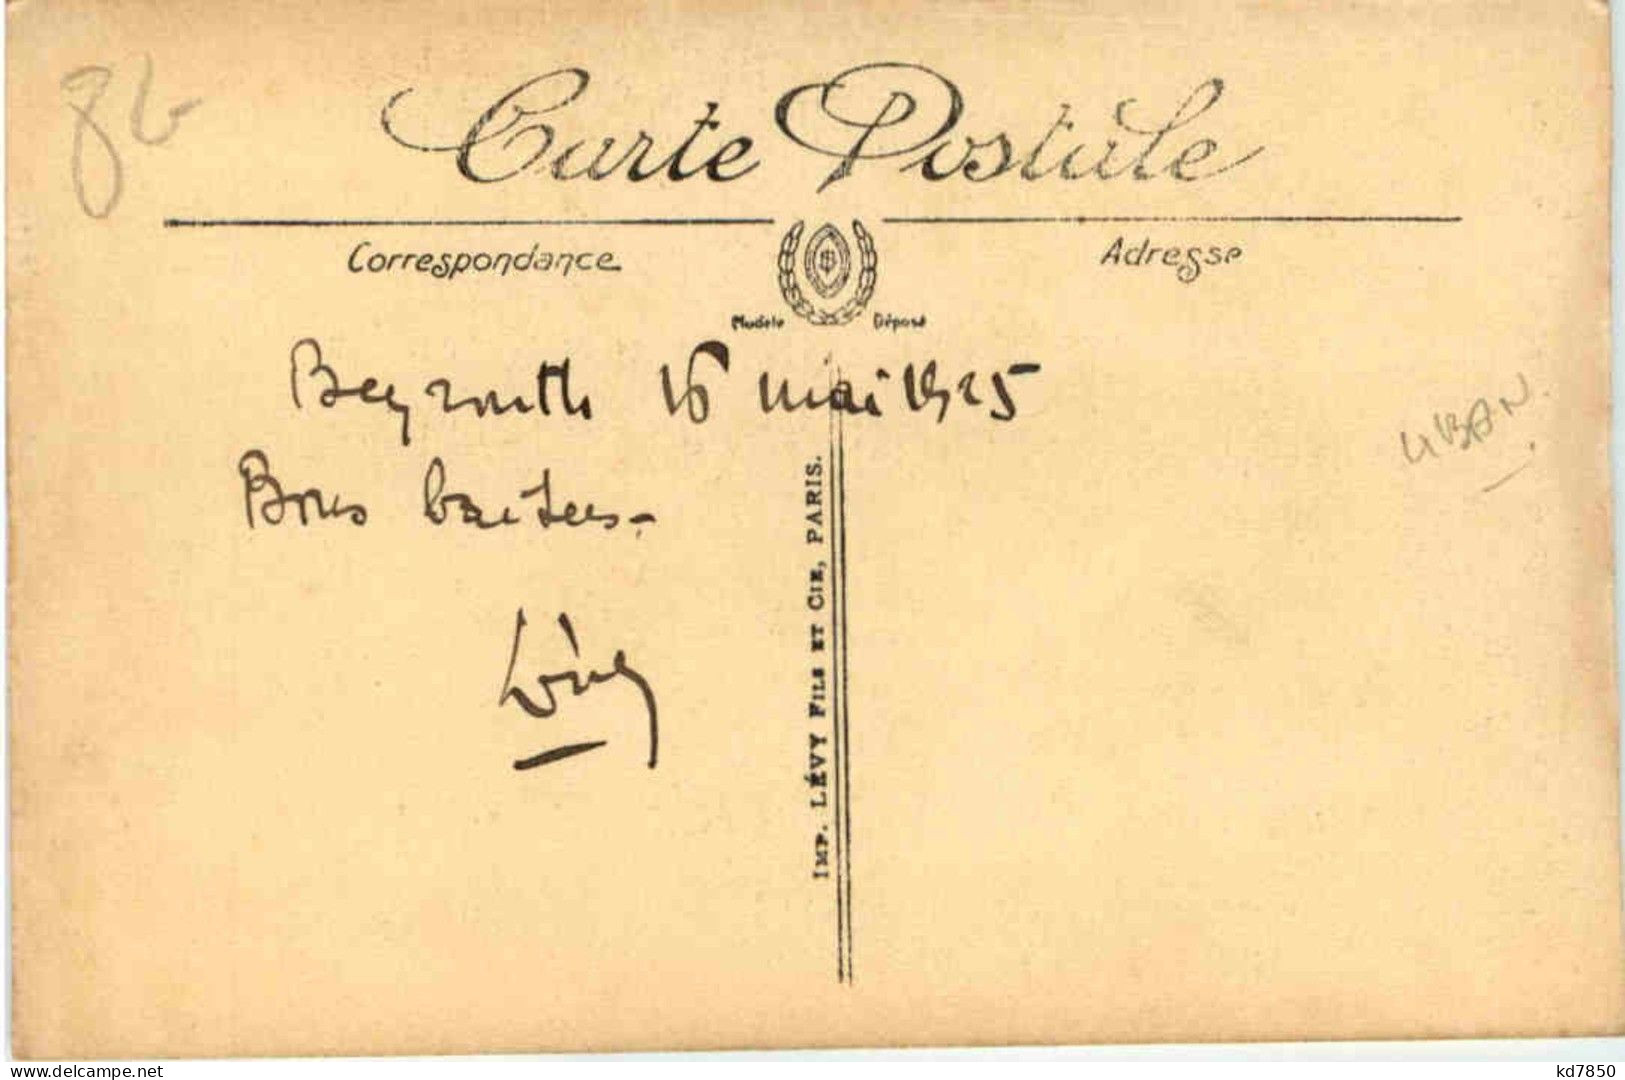 Carte Postale
Correspondance
Adresse
Modèle Déposé
Beyrouth 16 mai 1925
Bons baisers -
IMP. LÉVY FILS ET CIE, PARIS.
LIBAN
delcampe.net
kd7850